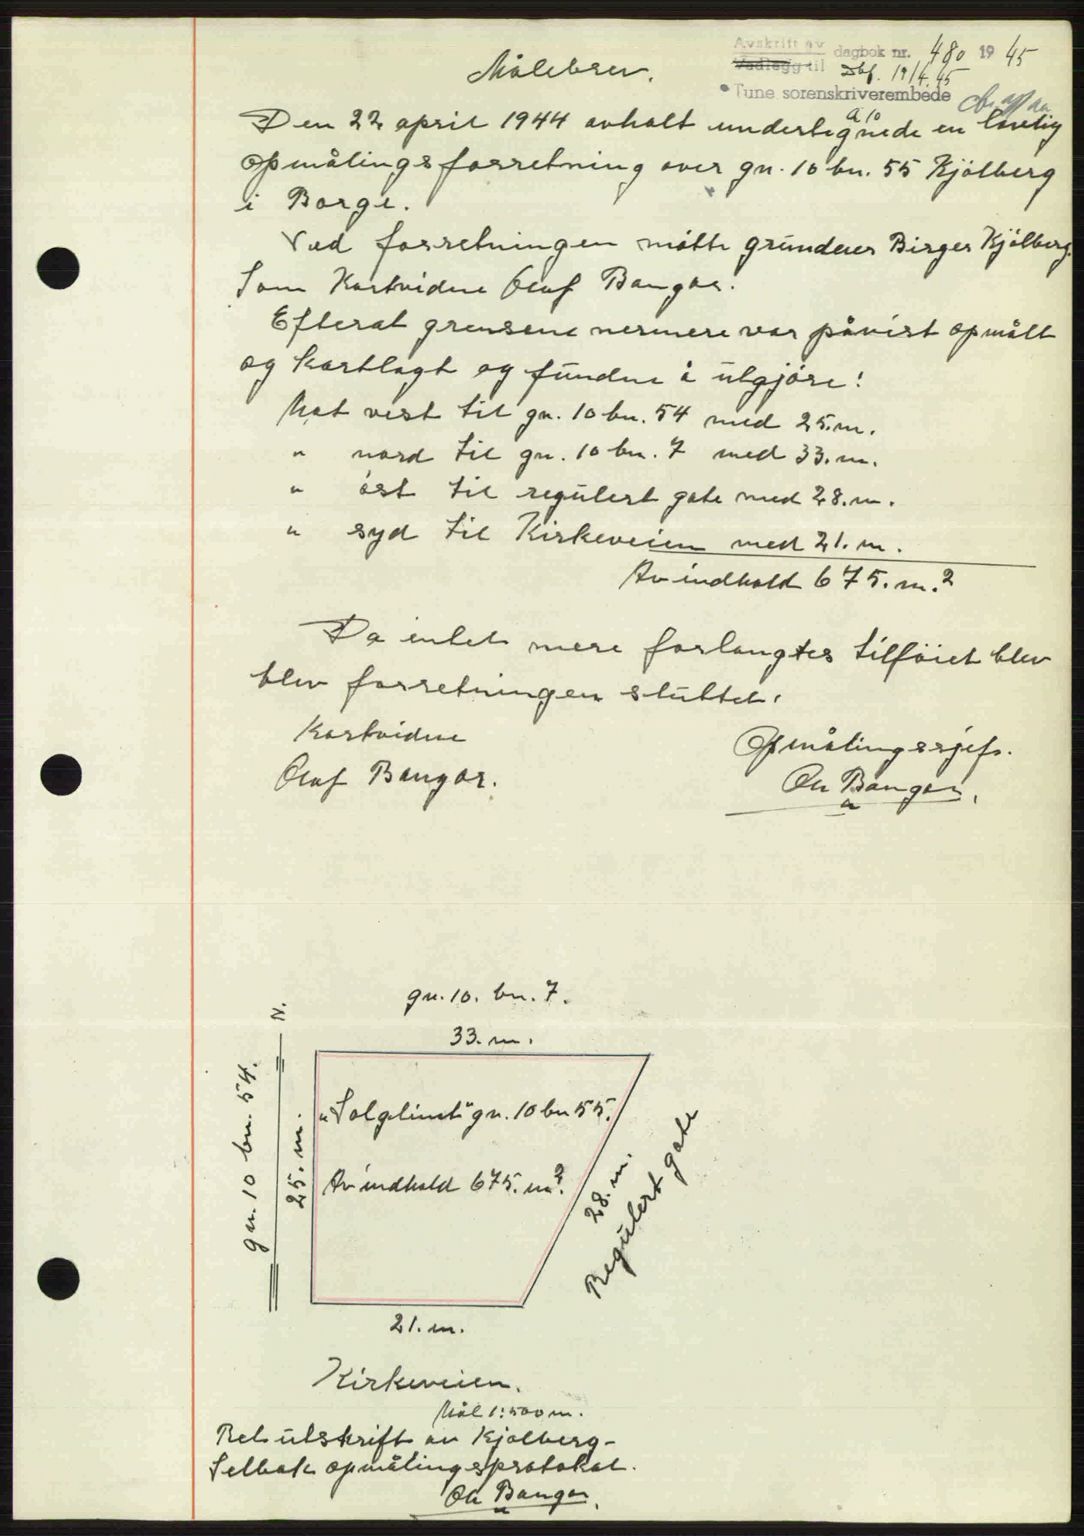 Avskrift av dagbok nr. 480 1945
Vedlegg til Dbf. 19/4.45
Tune sorenskriverembede
Målebrev.
a 10
Den 22 april 1944 avholt undertegnede en lovlig
opmålingsforretning over gn. 10 bn. 55 Kjölberg
i Borge.
Ved forretningen mötte grundeier Birger Kjölberg.
Som Kartvidne Olaf Bangar.
Efterat grensene nermere var påvist opmålt
og kartlagt og fundne å utgjöre:
Mot vest til gn. 10 bn. 54 med 25.m.
" nord til gn. 10 bn. 7 med 33.m.
" öst til regulert gate med 28.m.
" syd til Kirkeveien med 21.m.
Av indhold 675.m.²
Da intet mere forlangtes tilföiet blev
blev forretningen sluttet.
Kartvidne
Olaf Bangar.
Opmålingssjef.
Ole Bangar.
gn. 10. bn. 7.
33.m.
N.
gn. 10 bn. 54.
25.m.
"Solglimt" gn. 10 bn 55.
Av indhold 675.m².
28.m.
Regulert gate
21.m.
Kirkeveien.
Mål 1:500m.
Ret utskrift av Kjölberg-
Selbak opmålingsprotokol.
Ole Bangar.